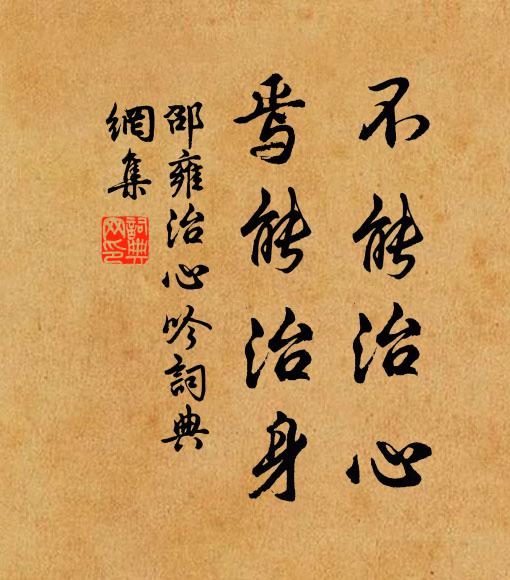 不能治心
焉能治身
邵雍治心吟詞典
網集
詞典
网印